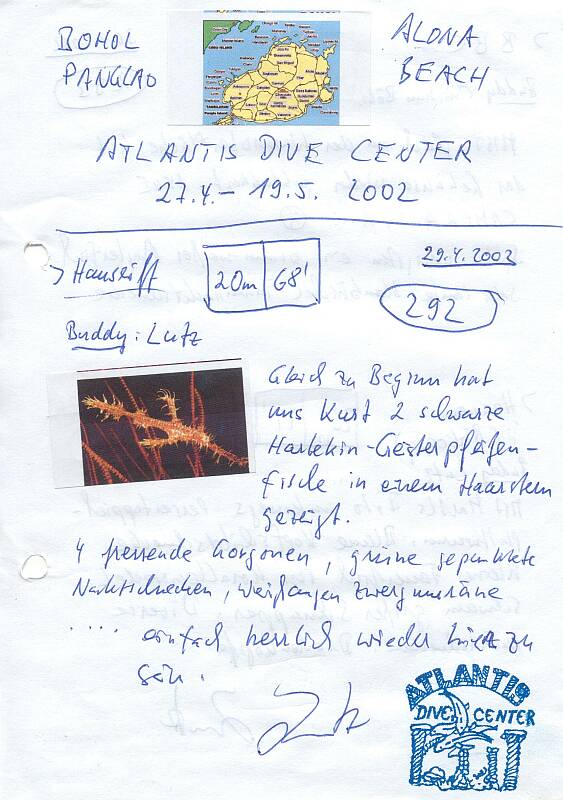 BOHOL
PANGLAO
ALONA
BEACH
ATLANTIS DIVE CENTER
27.4. – 19.5. 2002
> Hausriff
20m 68'
29.4.2002
292
Buddy: Lutz
Gleich zu Beginn hat
uns Kurt 2 schwarze
Harlekin-Geisterpfeifen-
fische in einem Haarstern
gezeigt.
4 fressende Gorgonen, grüne gepunktete
Nacktschnecken, Weißaugen Zwergmuräne
.... einfach herrlich wieder hier zu
sein.
ATLANTIS
DIVE CENTER